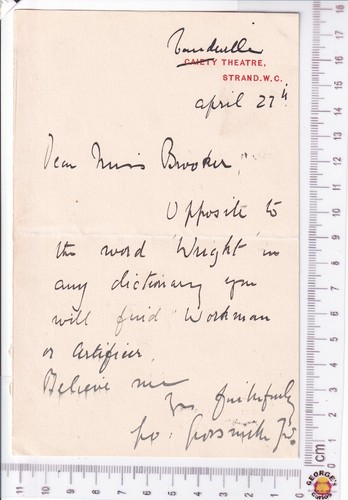 Vaudeville
GAIETY THEATRE,
STRAND. W. C.
april 27th
Dear Miss Brooker,
Opposite to
the word 'Wright' in
any dictionary you
will find 'Workman
or Artificer.
Believe me
Yrs. faithfully
Geo: Grossmith Jr.
cm
GEORGE'S